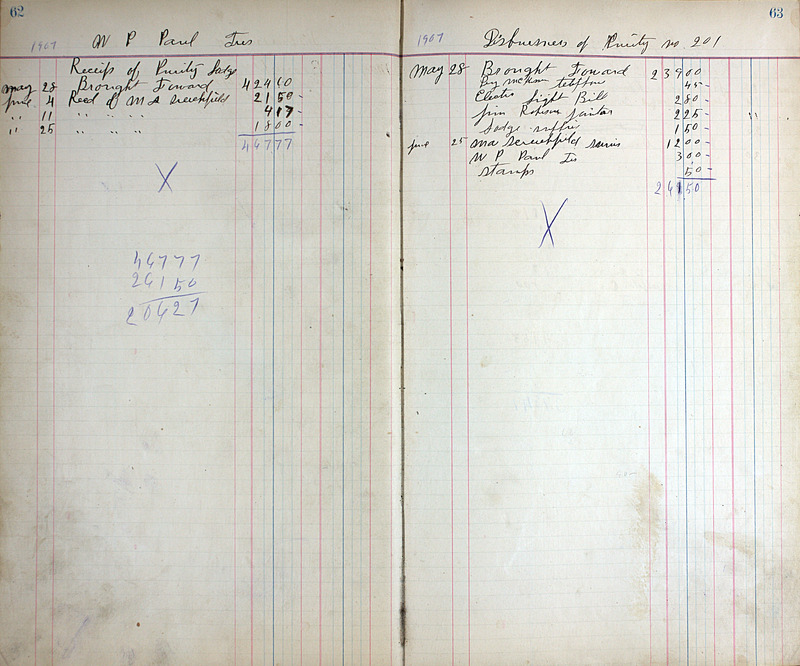 62
1907 W P Paul Tres
Receips of Purity Lodge
May 28 Brought Foward 424 10
June 4 Recd of M A Scruchfield 21 50 -
" 11 " " " " 4 17 -
" 25 " " " " 18 00 -
467 77
X
467 77
261 50
206 27
63
1907 Disbursmers of Purity no. 201
May 28 Brought Foward 239 00
telephone 45 -
Electric Light Bill 2 80 -
" Jim Robison janitor 2 25 -
Lodge 1 50 -
June 25 Ma Scruchfield 12 00 -
W P Paul Ts 3 00 -
Stamps 50 -
261 50
X